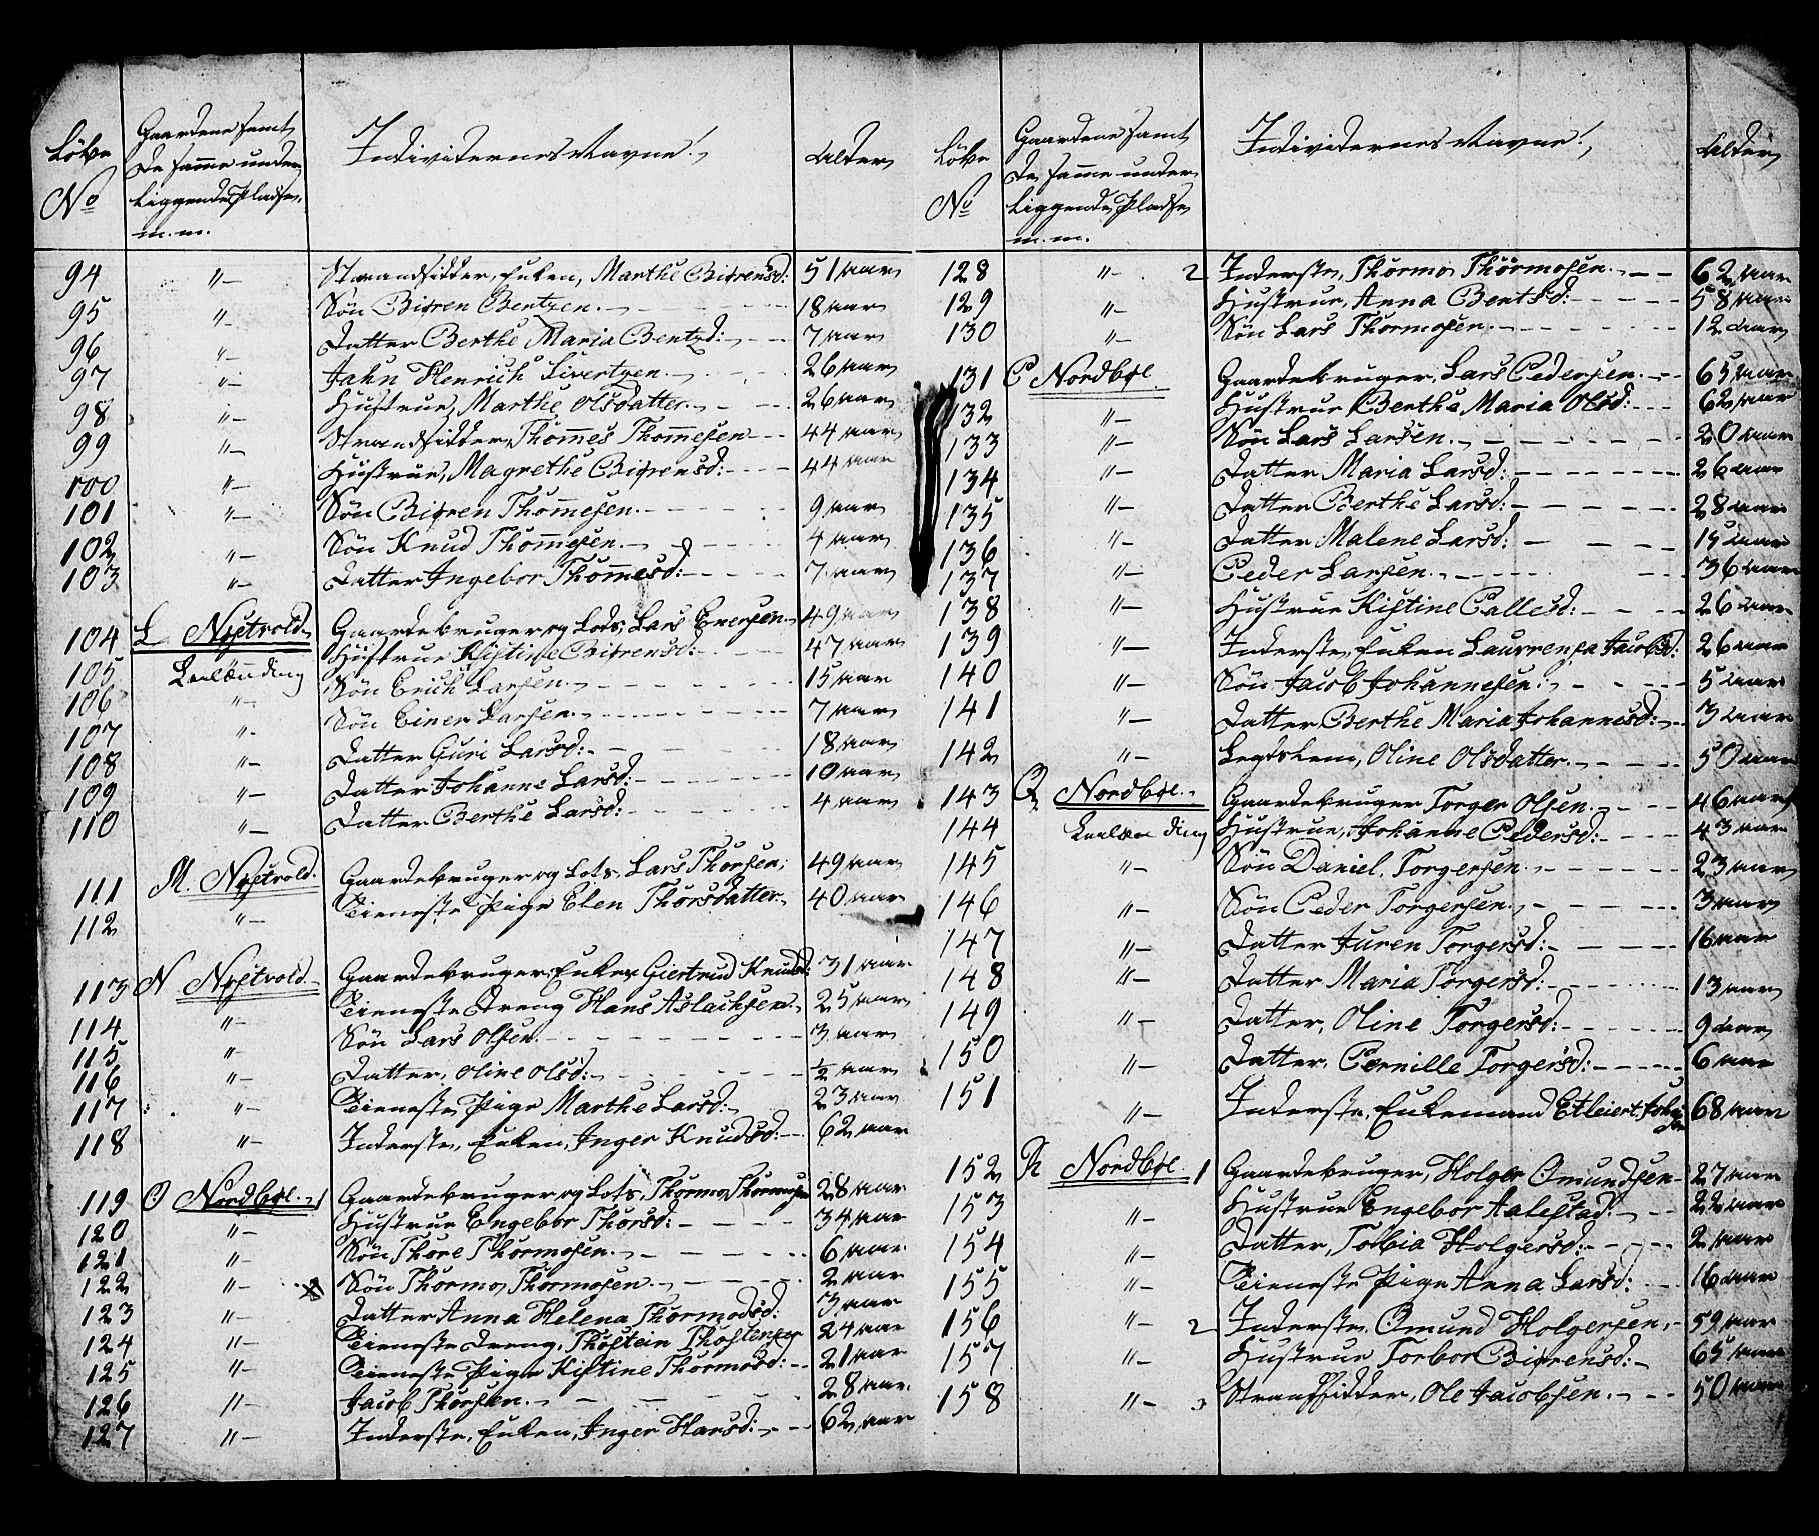 Løbe
No
Gaardene samt
de samme under
liggende Pladse
m. m.
Individernes Navne.
Alder
94 "— Strandsidder, Enken, Marthe Biørensd: 51 aar
95 "— Søn Biøren Bentzen. 18 aar
96 "— Datter Berthe Maria Bentzd: 7 aar
97 "— Jahn Henrich Sivertzen. 26 aar
98 "— Hustrue, Marthe Olsdatter. 26 aar
99 "— Strandsidder, Thomes Thomesen 44 aar
100 "— Hustrue, Magrethe Biørensd: 44 aar
101 "— Søn Biøren Thomesen. 9 aar
102 "— Søn Knud Thomesen. 4 aar
103 "— Datter Ingebor Thomesd: 7 aar
104 L Nøstvold Gaardebruger og Lots, Lars Enersen. 49 aar
105 Hustrue Kistine Biørensd: 47 aar
106 "— Søn Erich Larsen. 15 aar
107 "— Søn Einer Larsen. 7 aar
108 "— Datter Guri Larsd: 18 aar
109 "— Datter Johanne Larsd: 10 aar
110 "— Datter Berthe Larsd: 4 aar
111 M. Nøstvold. Gaardebruger og Lots, Lars Thorsen; 49 aar
112 "— Tieneste Pige Elen Thorsdatter. 40 aar
113 N Nøstvold Gaardebruger, Enke, Giertrud Knudsd: 31 aar
114 "— Tieneste Dreng Hans Aslachsen 25 aar
115 "— Søn Lars Olsen. 3 aar
116 "— Datter, Oline Olsd: 1/2 aar
117 "— Tieneste Pige Marthe Larsd: 23 aar
118 "— Inderste, Enken, Inger Knudsd: 62 aar
119 O Nordbøe. 1 Gaardebruger og Lots, Thormo Thormosen 28 aar
120 "— Hustrue Engebor Thorsd: 34 aar
121 "— Søn Thore Thormosen. 6 aar
122 "— Søn Thormo, Thormosen. 2 aar
123 "— Datter Anna Helena Thormodsd: 3 aar
124 "— Tieneste Dreng, Thostein Thostensen 24 aar
125 "— Tieneste Pige Kistine Thormosd: 21 aar
126 "— Jacob Thorsen. 28 aar
127 "— Inderste, Enken, Inger Hansd: 62 aar
Løbe
No
Gaardene samt
de samme under
liggende Pladse
m. m.
Individernes Navne.
Alder
128 "— 2 Inderste, Thormo, Thormosen. 62 aar
129 "— Hustrue, Anna Bentsd: 58 aar
130 "— Søn Lars Thormosen. 12 aar
131 P Nordbøe. Gaardebruger, Lars Pedersen. 65 aar
132 "— Hustrue Berthe Maria Olsd: 62 aar
133 "— Søn Lars Larsen. 20 aar
134 "— Datter Maria Larsd: 26 aar
135 "— Datter Berthe Larsd: 28 aar
136 "— Datter Malene Larsd: 15 aar
137 "— Peder Larsen. 36 aar
138 "— Hustrue Kistine Pallesd: 26 aar
139 "— Inderste, Enken Laurensa Jacobsd: 26 aar
140 "— Søn Jacob Johannesen. 5 aar
141 "— Datter Berthe Maria Johannesd: 3 aar
142 "— Legdslem, Oline Olsdatter. 50 aar
143 Q Nordbøe. Gaardebruger Torger Olsen. 46 aar
144 Hustrue, Johanne Pedersd: 43 aar
145 "— Søn Daniel Torgersen. 23 aar
146 "— Søn Peder Torgersen. 3 aar
147 "— Datter Juren Torgersd: 16 aar
148 "— Datter Maria Torgersd: 13 aar
149 "— Datter, Oline Torgersd: 9 aar
150 "— Datter, Pernille Torgersd: 6 aar
151 "— Inderste, Enkemand 68 aar
152 R Nordbøe. 1 Gaardebruger, Holger Omundsen 27 aar
153 "— Hustrue Engebor Aalestad. 22 aar
154 "— Datter, Tobia Holgersd: 2 aar
155 "— Tieneste Pige Anna Larsd: 16 aar
156 "— 2 Inderste, Omund Holgersen, 59 aar
157 "— Hustrue Torbor Biørensd: 65 aar
158 "— 3 Strandsidder, Ole Jacobsen. 50 aar